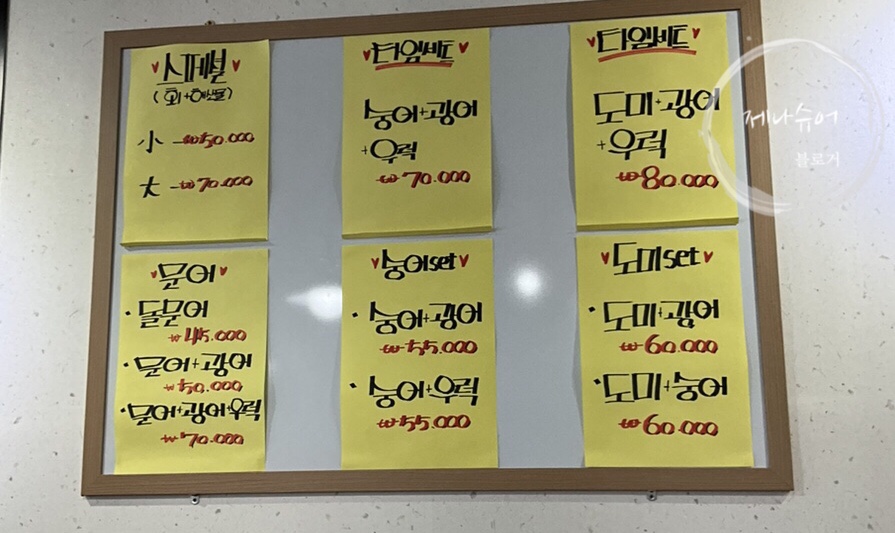 스페셜
(회+해산물)
小 - ₩50.000
大 - ₩70.000
타임세트
숭어+광어
+우럭
₩70.000
타임세트
도미+광어
+우럭
₩80.000
제나슈어
블로거
문어
· 돌문어
₩45.000
· 문어+광어
₩50.000
· 문어+광어+우럭
₩70.000
숭어set
· 숭어+광어
₩55.000
· 숭어+우럭
₩55.000
도미set
· 도미+광어
₩60.000
· 도미+숭어
₩60.000